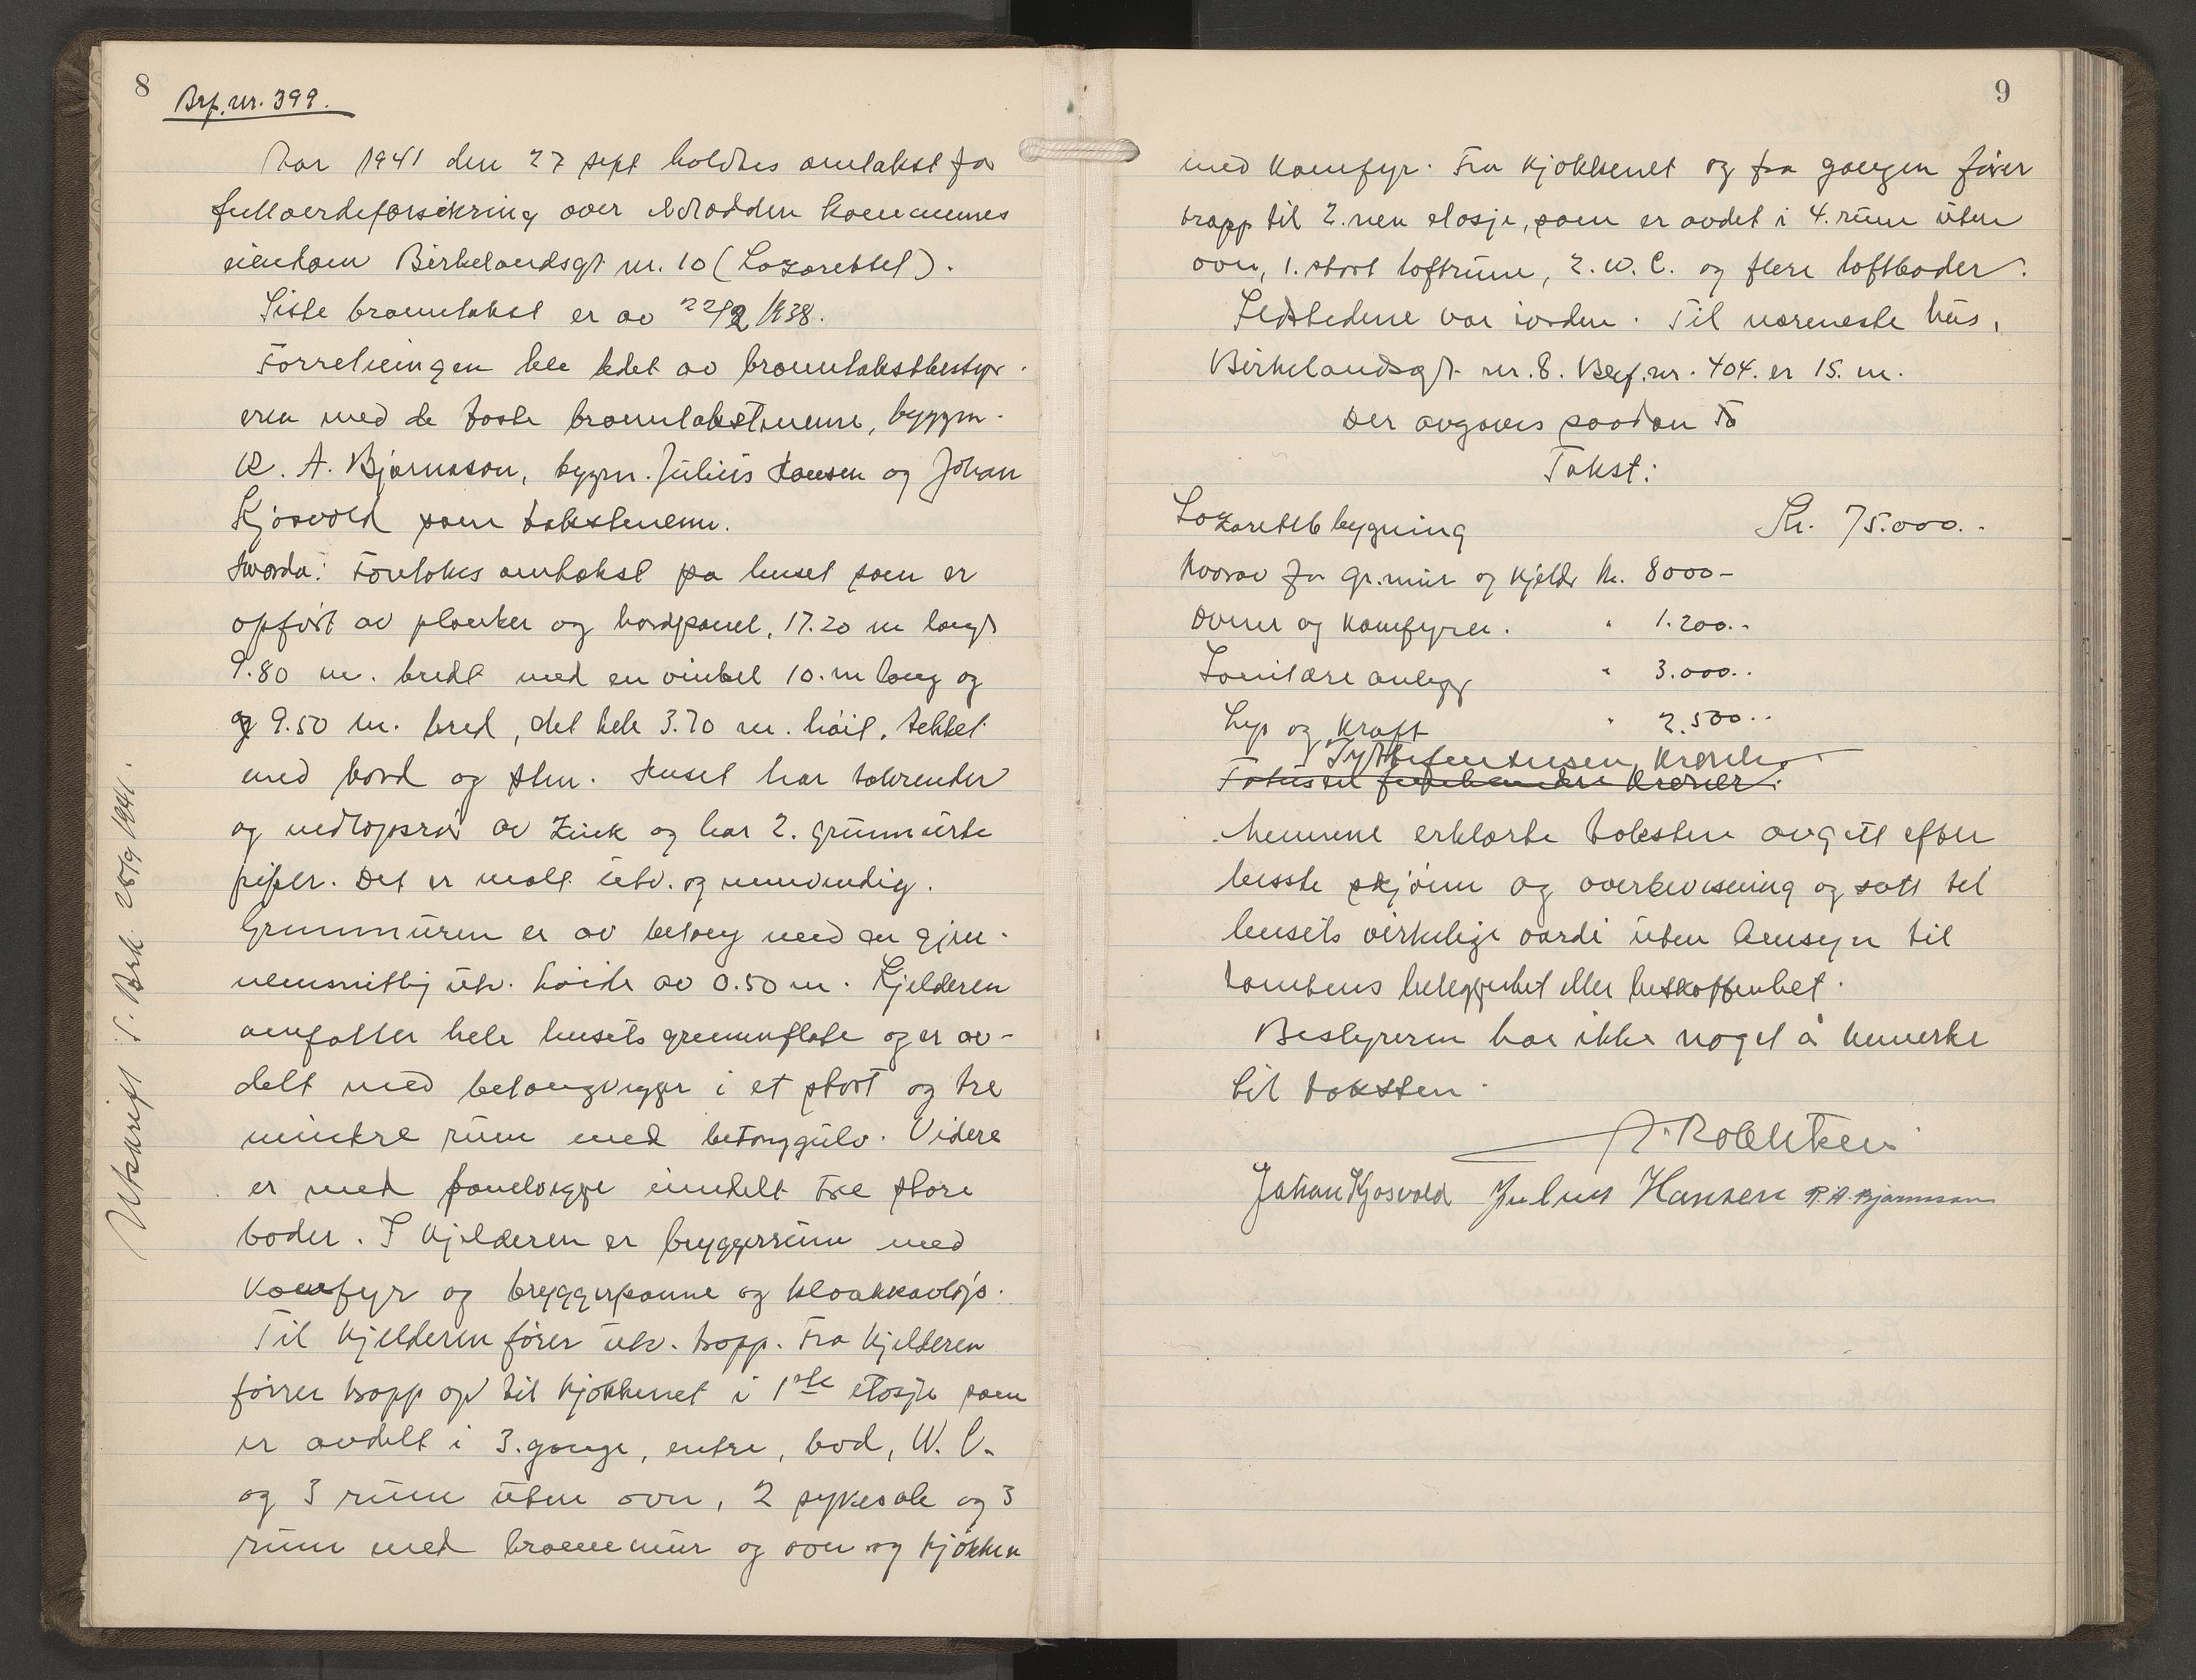 8
Brf. nr. 399.
Aar 1941 den 27 sept holdtes omtakst for
fullverdeforsikring over Notodden kommunes
eiendom Birkelandsgt. nr. 10 (Lazarettet).
Siste branntakst er av 22/2 1938.
Forretningen ble ledet av branntakstbestyr-
eren med de faste branntakstmenn, byggm.
R. A. Bjørnsson, byggm. Julius Hansen og Johan
Kjosvold som takstmenn.
Hvorda: Foretokes omtakst på huset som er
opført av planker og bordpanel, 17.20 m langt
9.80 m. bredt med en vinkel 10. m lang og
og 9.50 m. bred, det hele 3.70 m. høit, tekket
med bord og sten. Huset har takrender
og nedløpsrør av Zink og har 2. grunnmurte
piper. Det er malt utv. og innvendig.
Grunnmuren er av betong med en gjen-
nemsnittlig utv. høide av 0.50 m. Kjelderen
omfatter hele husets grunnflate og er av-
delt med betongvegger i et stort og tre
mindre rum med betonggulv. Videre
er med panelvegge inndelt tre store
boder. I Kjelderen er bryggerrum med
Komfyr og bryggerpanne og kloakkavløp.
Til Kjelderen fører utv. trapp. Fra Kjelderen
fører trapp op til Kjøkkenet i 1ste etasje som
er avdelt i 3. gange, entre, bod, W. C.
og 3 rum uten ovn, 2 sykesale og 3
rum med brannmur og ovn og Kjøkken
Utskrift S. Brk. 28/9 1941.
9
med Komfyr. Fra Kjøkkenet og fra gangen fører
trapp til 2.nen etasje, som er avdet i 4. rum uten
ovn, 1. stort loftrum, 2. W. C. og flere loftboder.
Ildstedene var iorden. Til nærmeste hus,
Birkelandsgt. nr. 8. Brf. nr. 404. er 15. m.
Der avgaves saadan To
Takst:
Lazarettbygning Kr. 75.000.-
hvorav for gr.mur og kjelder Kr. 8000-
Ovner og Komfyrer. " 1.200.-
Sanitære anlegg " 3.000.-
Lys og Kraft " 2.500.-
Syttifemtusen Kroner
Totusen femhundre Kroner.
Mennene erklærte taksten avgitt efter
beste skjønn og overbevisning og satt til
husets virkelige verdi uten hensyn til
tomtens beleggenhet eller beskaffenhet.
Bestyreren har ikke noget å bemerke
til taksten.
Johan Kjosvold Julius Hansen R. A. Bjørnsson